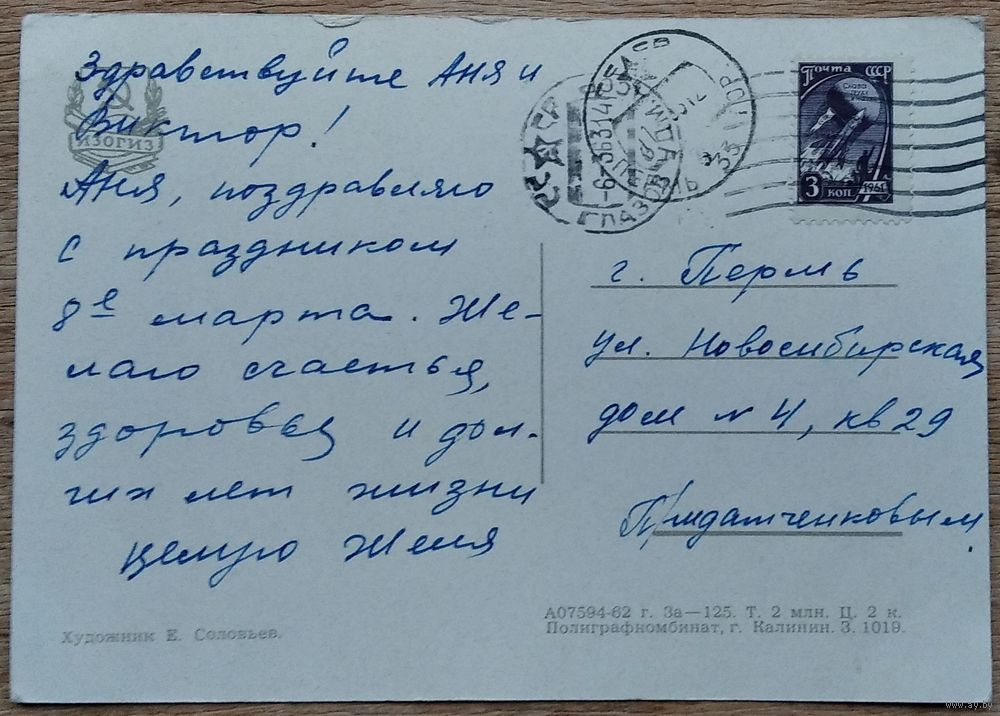 Здравствуйте Аня и
Виктор!
ИЗОГИЗ
Аня, поздравляю
с праздником
8е марта. Же-
лаю счастья,
здоровья и дол-
гих лет жизни
целую Женя
Художник Е. Соловьев.
СССР
ГЛАЗОВ
Почта СССР
3 коп
1961
г. Пермь
ул. Новосибирская
дом № 4, кв 29
А07594-62 г. За—125. Т. 2 млн. Ц. 2 к.
Полиграфкомбинат, г. Калинин. З. 1019.
www.ay.by